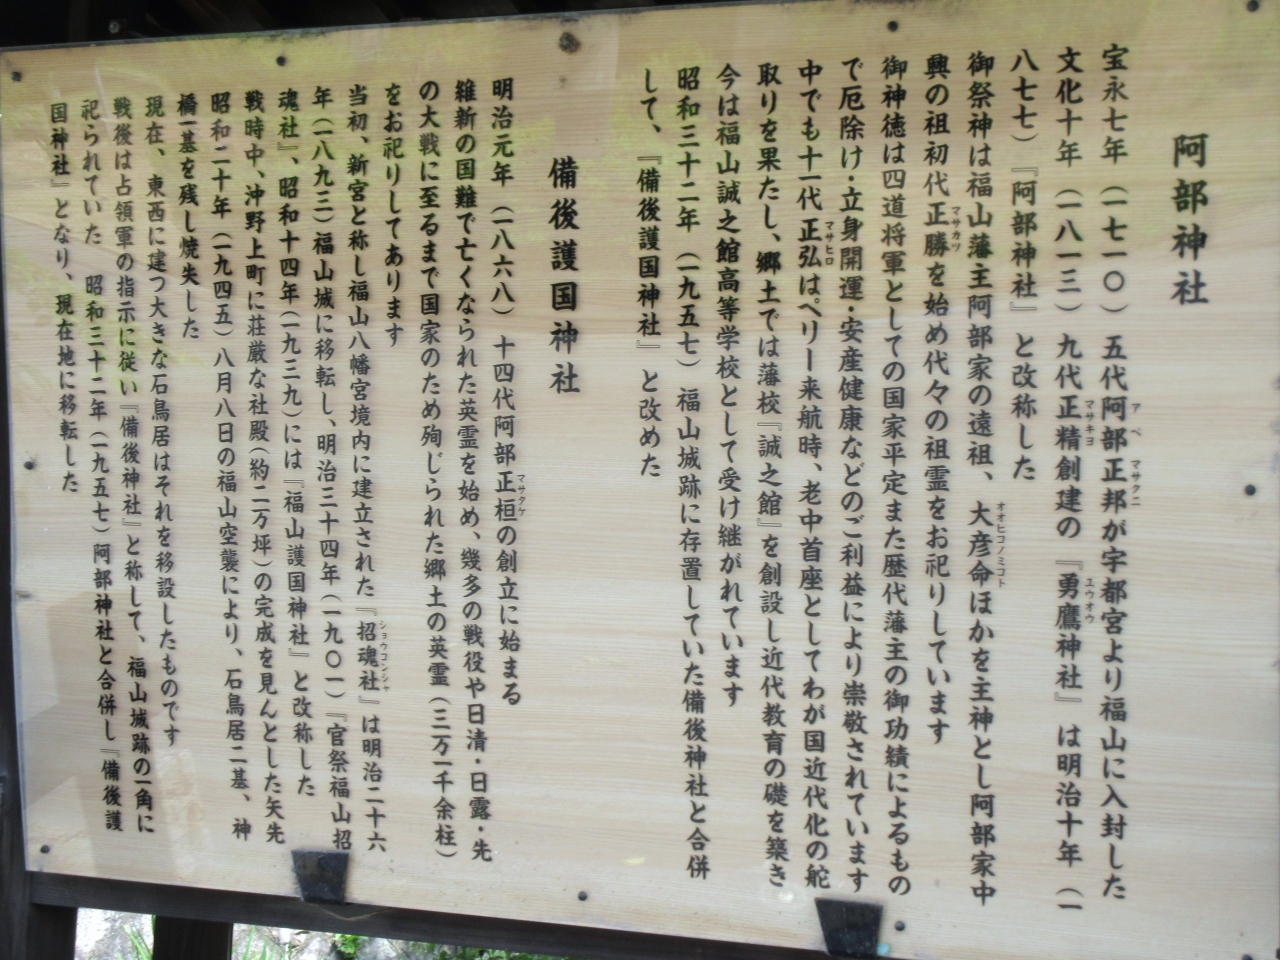 阿部神社
宝永七年（一七一〇）五代阿部正邦が宇都宮より福山に入封した
文化十年（一八一三）九代正精創建の『勇鷹神社』は明治十年（一
八七七）『阿部神社』と改称した
御祭神は福山藩主阿部家の遠祖、大彦命ほかを主神とし阿部家中
興の祖初代正勝を始め代々の祖霊をお祀りしています
御神徳は四道将軍としての国家平定また歴代藩主の御功績によるもの
で厄除け・立身開運・安産健康などのご利益により崇敬されています
中でも十一代正弘はペリー来航時、老中首座としてわが国近代化の舵
取りを果たし、郷土では藩校『誠之館』を創設し近代教育の礎を築き
今は福山誠之館高等学校として受け継がれています
昭和三十二年（一九五七）福山城跡に存置していた備後神社と合併
して、『備後護国神社』と改めた
備後護国神社
明治元年（一八六八）十四代阿部正桓の創立に始まる
維新の国難で亡くなられた英霊を始め、幾多の戦役や日清・日露・先
の大戦に至るまで国家のため殉じられた郷土の英霊（三万一千余柱）
をお祀りしてあります
当初、新宮と称し福山八幡宮境内に建立された『招魂社』は明治二十六
年（一八九三）福山城に移転し、明治三十四年（一九〇一）『官祭福山招
魂社』、昭和十四年（一九三九）には『福山護国神社』と改称した
戦時中、沖野上町に荘厳な社殿（約二万坪）の完成を見んとした矢先
昭和二十年（一九四五）八月八日の福山空襲により、石鳥居二基、神
橋一基を残し焼失した
現在、東西に建つ大きな石鳥居はそれを移設したものです
戦後は占領軍の指示に従い『備後神社』と称して、福山城跡の一角に
祀られていた　昭和三十二年（一九五七）阿部神社と合併し『備後護
国神社』となり、現在地に移転した
アベ
マサクニ
マサキヨ
ユウオウ
オオヒコノミコト
マサカツ
マサヒロ
マサタケ
ショウコンシャ